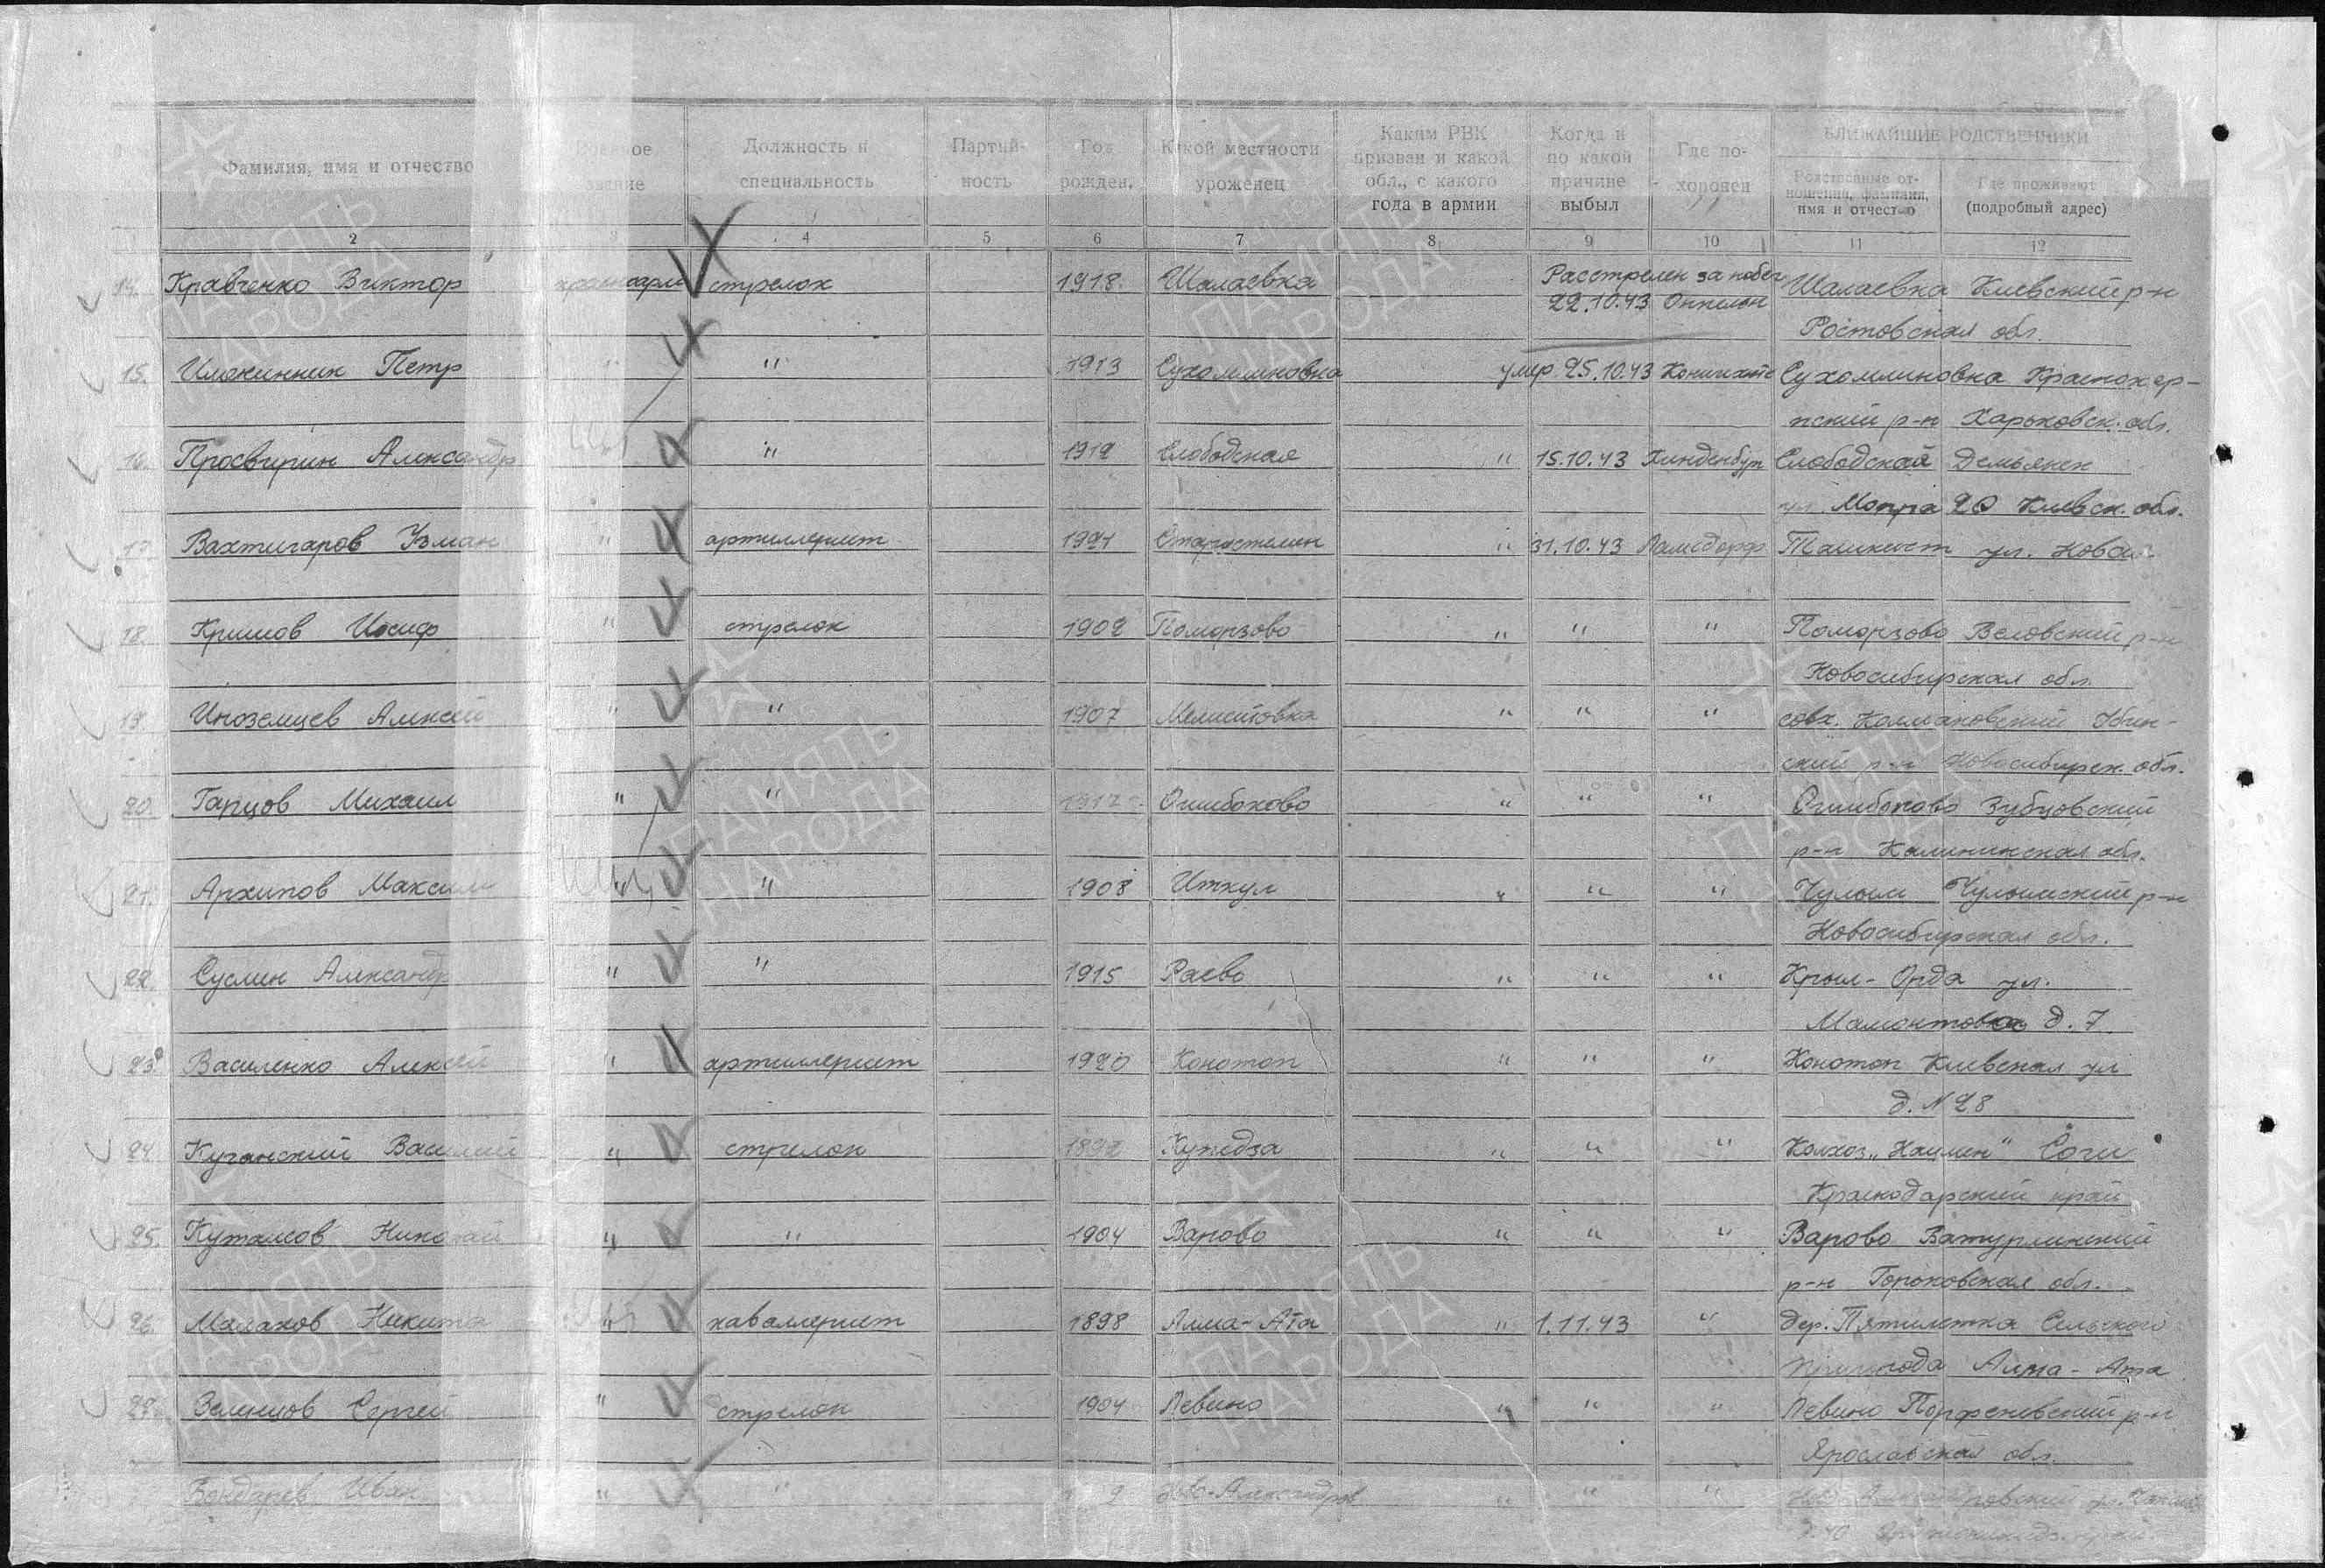 Фамилия, имя и отчество
Военное звание
Должность и специальность
Партий-ность
Год рожден.
Какой местности уроженец
Каким РВК призван и какой обл., с какого года в армии
Когда и по какой причине выбыл
Где по-хоронен
БЛИЖАЙШИЕ РОДСТВЕННИКИ
Родственные от-ношения, фамилия, имя и отчество
Где проживают (подробный адрес)
2 3 4 5 6 7 8 9 10 11 12
14. Кравченко Виктор красноарм стрелок 1918. Шалаевка Расстрелен за побег Шалаевка Киевский р-н
22.10.43 Оппелон
Ростовская обл.
15. Петр " 1913 Сухомлиновка умер 25.10.43 Сухомлиновка
ский р-н Харьковск. обл.
16. Просвирин Александр " " 1912 Слободская " 15.10.43 Хинденбург Слободская Демьянск
ул. Мопра 20 Киевск. обл.
17. Вахтигаров Узман " артиллерист 1921 " 31.10.43 Ламсдорф Ташкент ул. Новая
18. Кришов Иосиф " стрелок 1902 Поморзово " " " Поморзово Веловский р-н
Новосибирская обл.
19. Иноземцев Алексей " " 1907 " " " совх.
ский р-н Новосибирск. обл.
20. Гарцов Михаил " " 1917 Ошибоково " " " Ошибоково Зубцовский
р-н Калининская обл.
21. Архипов Максим " " 1908 Иткул " " " Чулым Чулымский р-н
Новосибирская обл.
22. Суслин Александр " " 1915 Раево " " " Крыл-Орда ул.
Мамонтова д. 7
23. Василенко Алексей " артиллерист 1920 Конотоп " " " Конотоп Киевская ул
д. N 28
24. Куганский Василий " стрелок 1892 Кутидза " " " Колхоз Сочи
Краснодарский край
25. Куташов Николай " " 1904 Варово " " " Варово Ватурлинский
р-н Горьковская обл.
26. Малахов Никита " каваллерист 1898 Алма-Ата " 1.11.43 " дер. Пятилетка Сельского
Алма-Ата
27. Зеленцов Сергей " стрелок 1904 Левино " " " Левино Парфеневский р-н
Ярославская обл.
Бондарев Иван " " Ново-Александров " " "
ПАМЯТЬ НАРОДА